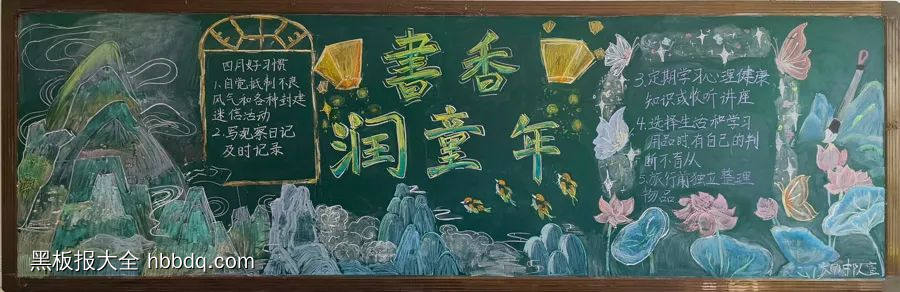 書香
润童年
四月好习惯
1.自觉抵制不良
风气和各种封建
迷信活动
2.写观察日记
及时记录
3.定期学习心理健康
知识或收听讲座
4.选择生活和学习
用品时有自己的判
断不盲从
5.旅行前独立整理
物品
黑板报大全 hbbdq.com